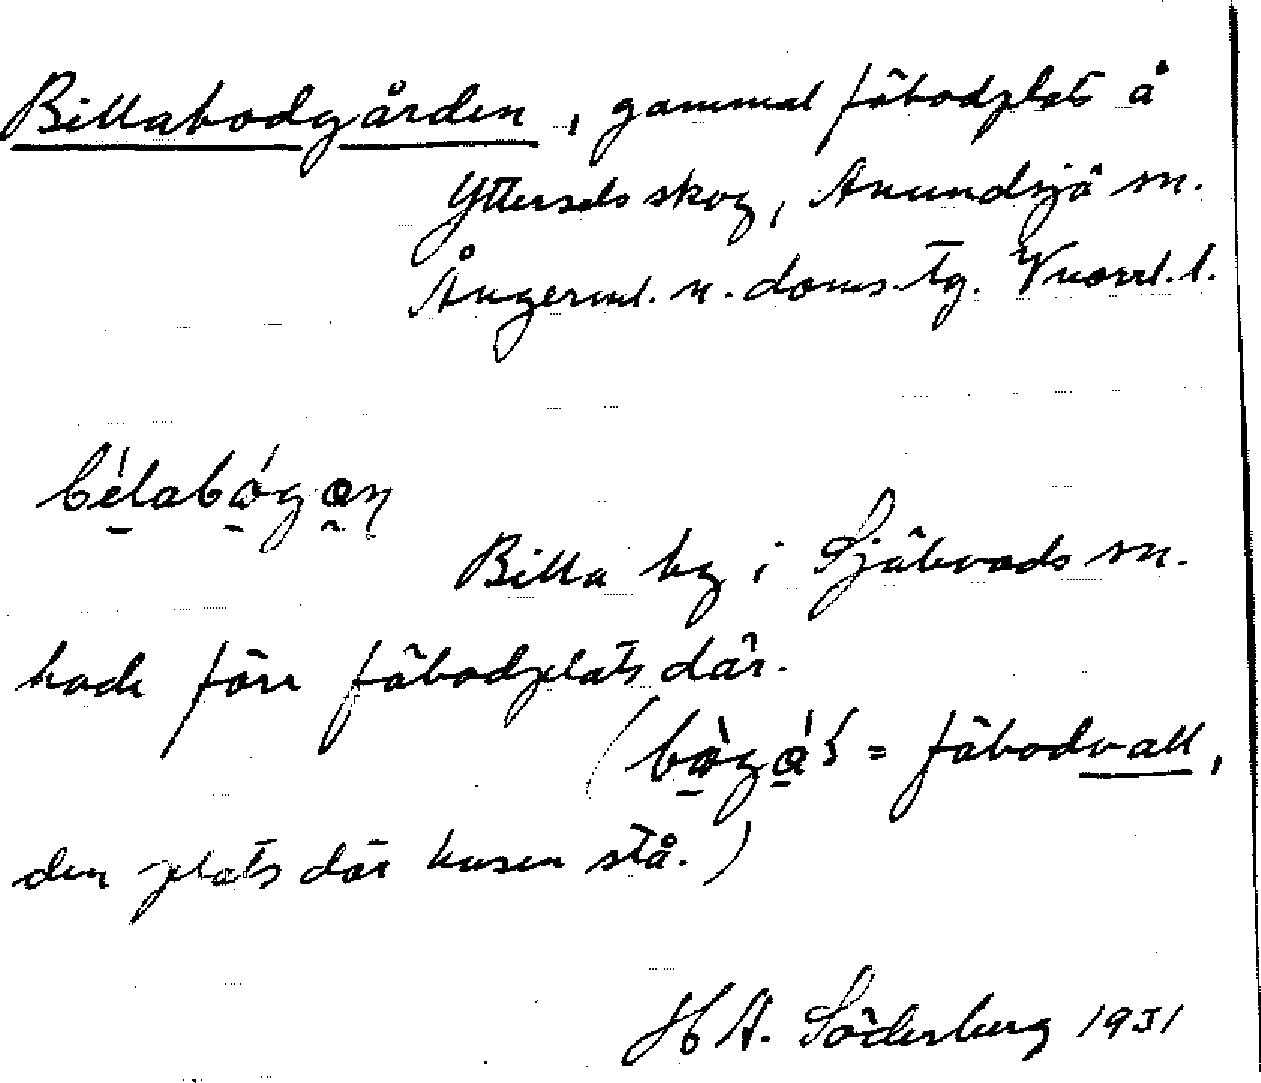 Billabodgården, gammal fäbodplats å
Yttersels skog, Anundsjö sn.
Ångerml. n. doms. tg. Vnorrl. l.
Billa by i Själevads sn.
hade förr fäbodplats där.
= fäbodvall,
den plats där husen stå.)
H A. Söderberg 1931